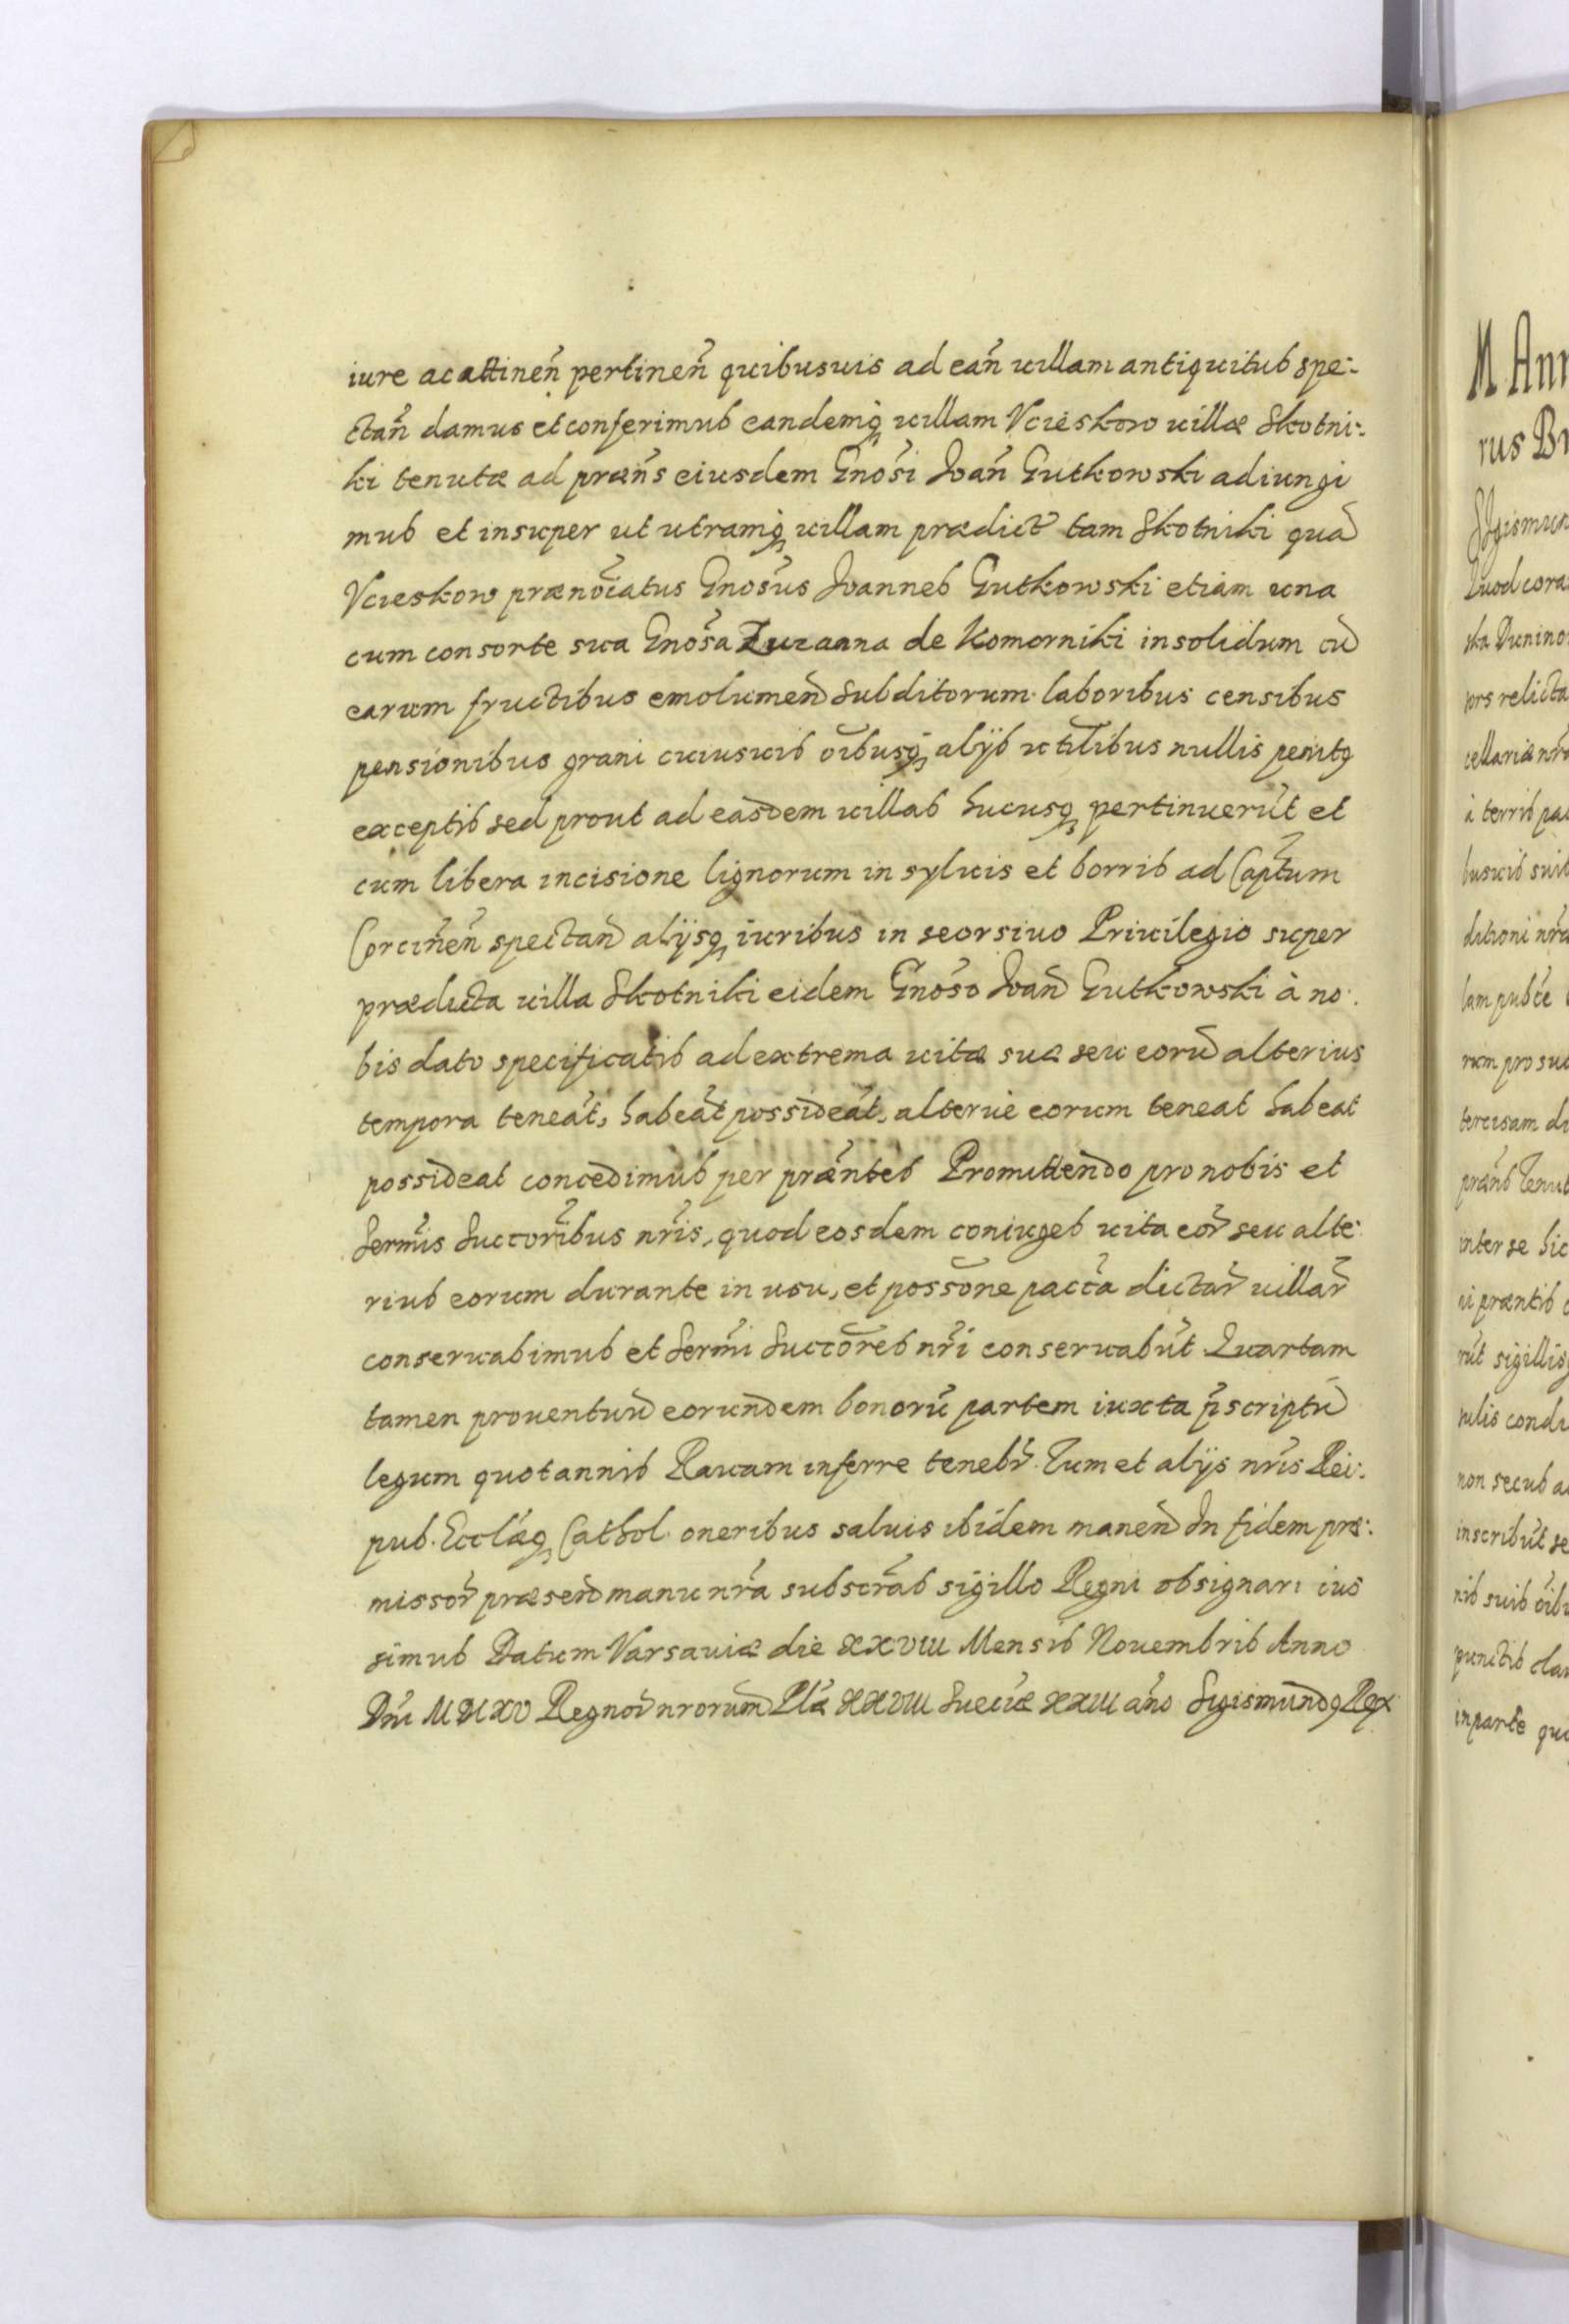 iure ac attineñ pertineñ quibusuis ad eañ uillam antiquitus spe-
ctañ damus et conferimus eandemq; uillam Vcieskow uillæ Skotni-
ki tenutæ ad præñs eiusdem Gnosi Ioañ Gutkowski adiungi
mus et insuper ut utramq; uillam prædict tam Skotniki quã
Vcieskow prænõiatus Gnosus Ioannes Gutkowski etiam una
cum consorte sua Gnosa Zuzanna de Komorniki in solidum cũ
earum fructibus emolumen̄ subditorum laboribus censibus
pensionibus grani cuiusuis oı̃busq; alÿs utilibus nullis penitq
exceptis sed prout ad easdem uillas hucusq; pertinuerũt et
cum libera incisione lignorum in syluis et borris ad Captum
Corcineñ spectan̄ alÿsq; iuribus in seorsiuo Priuilegio super
prædicta uilla Skotniki eidem Gnoso Ioan̄ Gutkowski à no-
bis dato specificatis ad extrema uitæ suæ seu eorũ alterius
tempora teneãt, habeãt possideãt, alterue eorum teneat habeat
possideat concedimus per præntes Promittendo pro nobis et
Sermis Succoribus nris, quod eosdem coniuges uita eor̃ seu alte-
rius eorum durante in usu, et possõne pacca dictar̃ uillar̃
conseruabimus et Sermi Succores nri conseruabũt Quartam
tamen prouentuũ eorundem bonorũ partem iuxta p̃scriptũ
legum quotannis Rauam inferre teneb̃r Tum et alÿs nris Rei-
pub. Ecclæq; Cathol. oneribus saluis ibidem manen̄ In fidem præ-
missor̃ præsen̄ manu nra subscras sigillo Regni obsignari ius
simus Datum Varsauiæ die XXVIII Mensis Nouembris Anno
Dni MDCXV Regnor̃ nrorum Plæ XXVIII Sueciæ XXIII año Sigismundq Rex
M Ann
rus Br
Sigismun
Quod cora
ska Dunino
sors relicta
cellariæ nr
à terris pa
busuis suis
dationi nr
lam pubce
rum pro sua
tercisam di
præns Tenut
inter se hic
ni præntis c
rũt sigillis
nulis condi
non secus a
inscribũt se
nis suis oı̃b
punctis cla
in parte qu